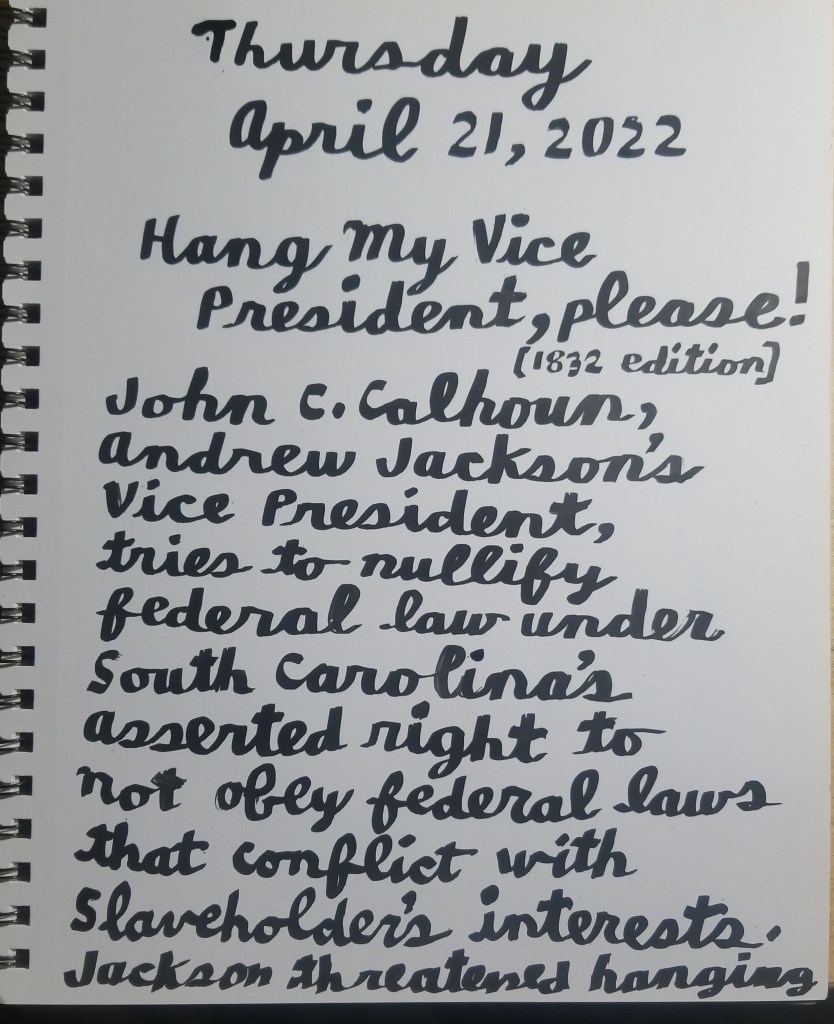 Thursday
April 21, 2022
Hang My Vice
President, please!
[1832 edition]
John C. Calhoun,
Andrew Jackson's
Vice President,
tries to nullify
federal law under
South Carolina's
asserted right to
not obey federal laws
that conflict with
Slaveholder's interests.
Jackson threatened hanging